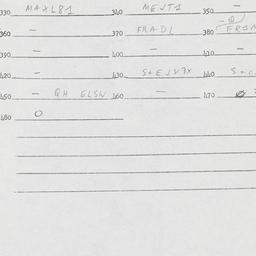 330 MAXL81 340 MEJT1 350 —
360 — 370 FRAD1 380
390 — 400 — 410 —
420 — 430 S+EJV3X 440
450 — QH ELSW 460 — 470 Ø
480 O